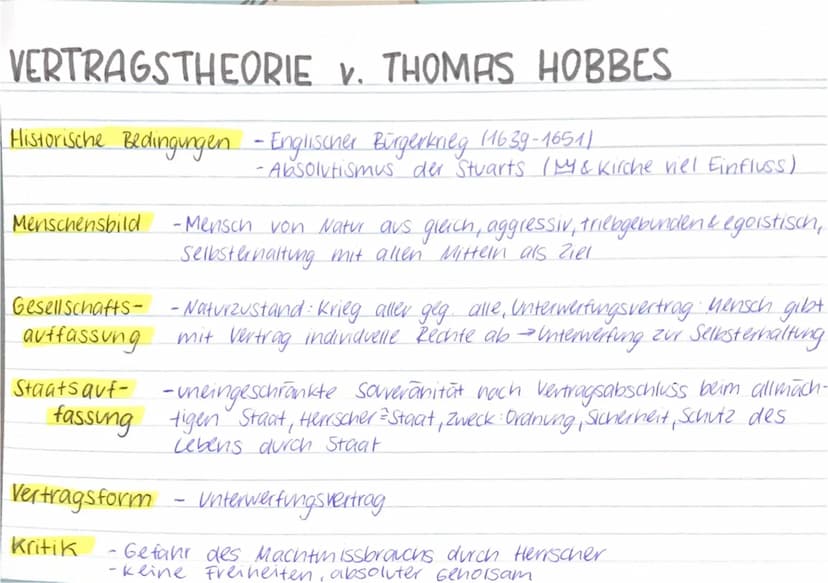 VERTRAGSTHEORIE v. THOMAS HOBBES
Historische Bedingungen - Englischer Bürgerkrieg (1639-1651)
- Absolutismus der Stuarts ( & Kirche viel Einfluss)
Menschensbild - Mensch von Natur aus gleich, aggressiv, triebgebunden & egoistisch,
Selbsterhaltung mit allen Mitteln als Ziel
Gesellschafts- - Naturzustand: Krieg aller geg. alle, Unterwerfungsvertrag: Mensch gibt
auffassung mit Vertrag individuelle Rechte ab → Unterwerfung zur Selbsterhaltung
Staatsauf- - uneingeschränkte Souveränität nach Vertragsabschluss beim allmäch-
fassung tigen Staat, Herrscher ≙ Staat, Zweck: Ordnung, Sicherheit, Schutz des
Lebens durch Staat
Vertragsform - Unterwerfungsvertrag
Kritik - Gefahr des Machtmissbrauchs durch Herrscher
- keine Freiheiten, absoluter Gehorsam